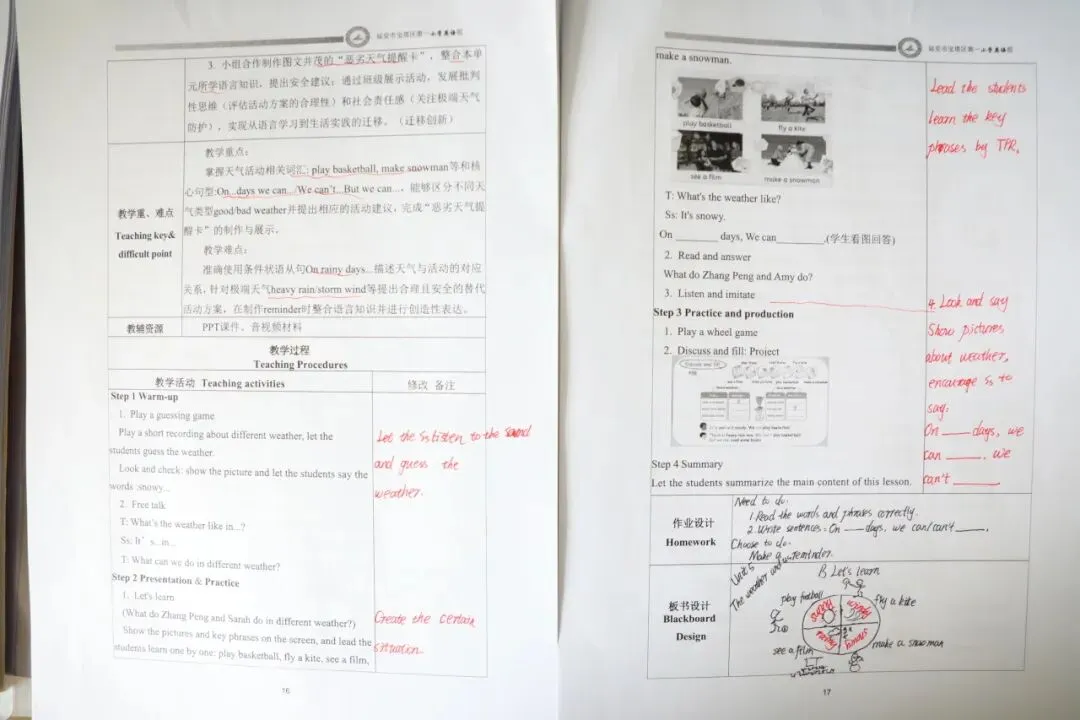 延安市宝塔区第一小学英语组
3. 小组合作制作图文并茂的“恶劣天气提醒卡”，整合本单
元所学语言知识，提出安全建议；通过班级展示活动，发展批判
性思维（评估活动方案的合理性）和社会责任感（关注极端天气
防护），实现从语言学习到生活实践的迁移。（迁移创新）
教学重、难点
Teaching key&
difficult point
教学重点：
掌握天气活动相关词汇: play basketball, make snowman等和核
心句型:On...days we can.../We can't...But we can...，能够区分不同天
气类型good/bad weather并提出相应的活动建议，完成“恶劣天气提
醒卡”的制作与展示。
教学难点：
准确使用条件状语从句On rainy days...描述天气与活动的对应
关系，针对极端天气heavy rain/storm wind等提出合理且安全的替代
活动方案，在制作reminder时整合语言知识并进行创造性表达。
教辅资源
PPT课件、音视频材料
教学过程
Teaching Procedures
教学活动 Teaching activities
修改 备注
Step 1 Warm-up
1. Play a guessing game
Play a short recording about different weather, let the
students guess the weather.
Look and check: show the picture and let the students say the
words :snowy...
2. Free talk
T: What's the weather like in...?
Ss: It's...in...
T: What can we do in different weather?
Step 2 Presentation & Practice
1. Let's learn
(What do Zhang Peng and Sarah do in different weather?)
Show the pictures and key phrases on the screen, and lead the
students learn one by one: play basketball, fly a kite, see a film,
Let the Ss listen to the sound
and guess the
weather.
Create the certain
situation.
16
小学英语组
make a snowman.
play basketball
fly a kite
see a film
make a snowman
T: What's the weather like?
Ss: It's snowy.
On ________ days, We can_________.(学生看图回答)
2. Read and answer
What do Zhang Peng and Amy do?
3. Listen and imitate
Step 3 Practice and production
1. Play a wheel game
2. Discuss and fill: Project
Step 4 Summary
Let the students summarize the main content of this lesson.
Lead the students
learn the key
phrases by TPR.
4. Look and say
Show pictures
about weather,
encourage Ss to
say:
On ____ days, we
can _____, we
can't ______
作业设计
Homework
Need to do:
1. Read the words and phrases correctly.
2. Write sentences: On ___ days, we can/can't _____.
Choose to do:
Make a reminder.
板书设计
Blackboard
Design
Unit 5
The weather and us
B Let's learn
play football
fly a kite
sunny
windy
snowy
see a film
make a snowman
17